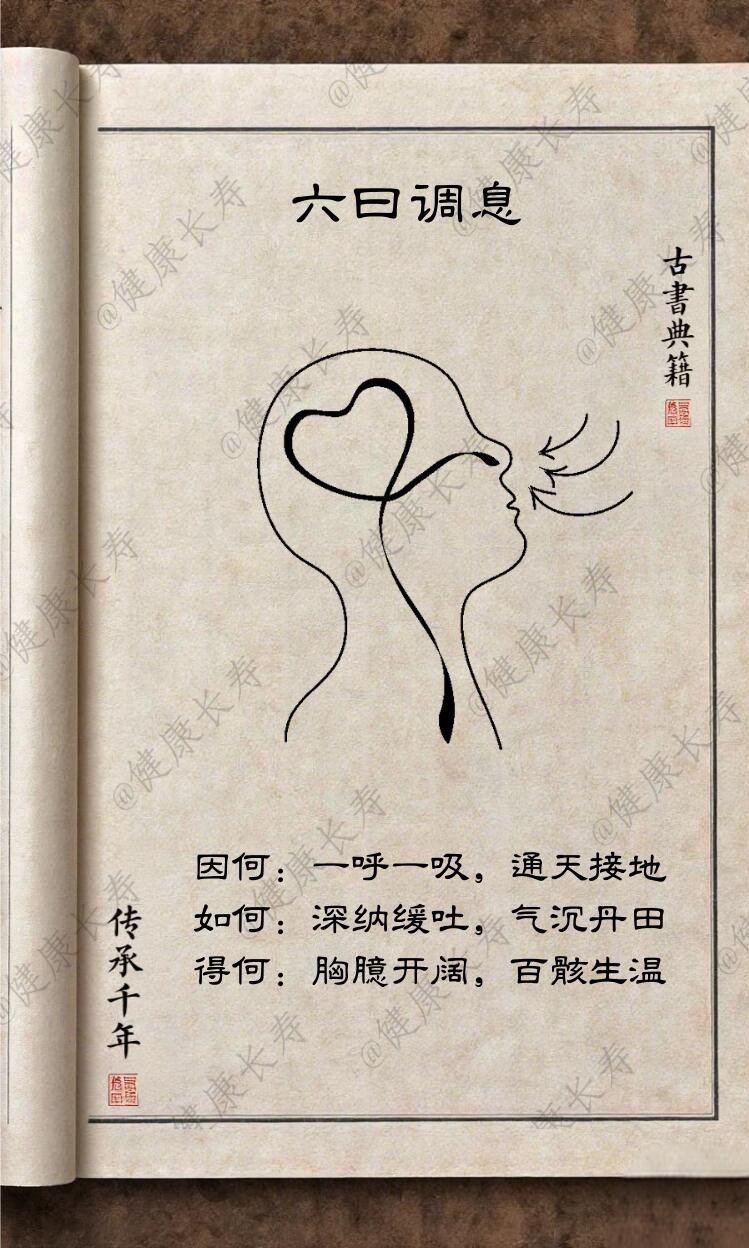 六曰调息
古書典籍
因何：一呼一吸，通天接地
如何：深纳缓吐，气沉丹田
得何：胸臆开阔，百骸生温
传承千年
@健康长寿